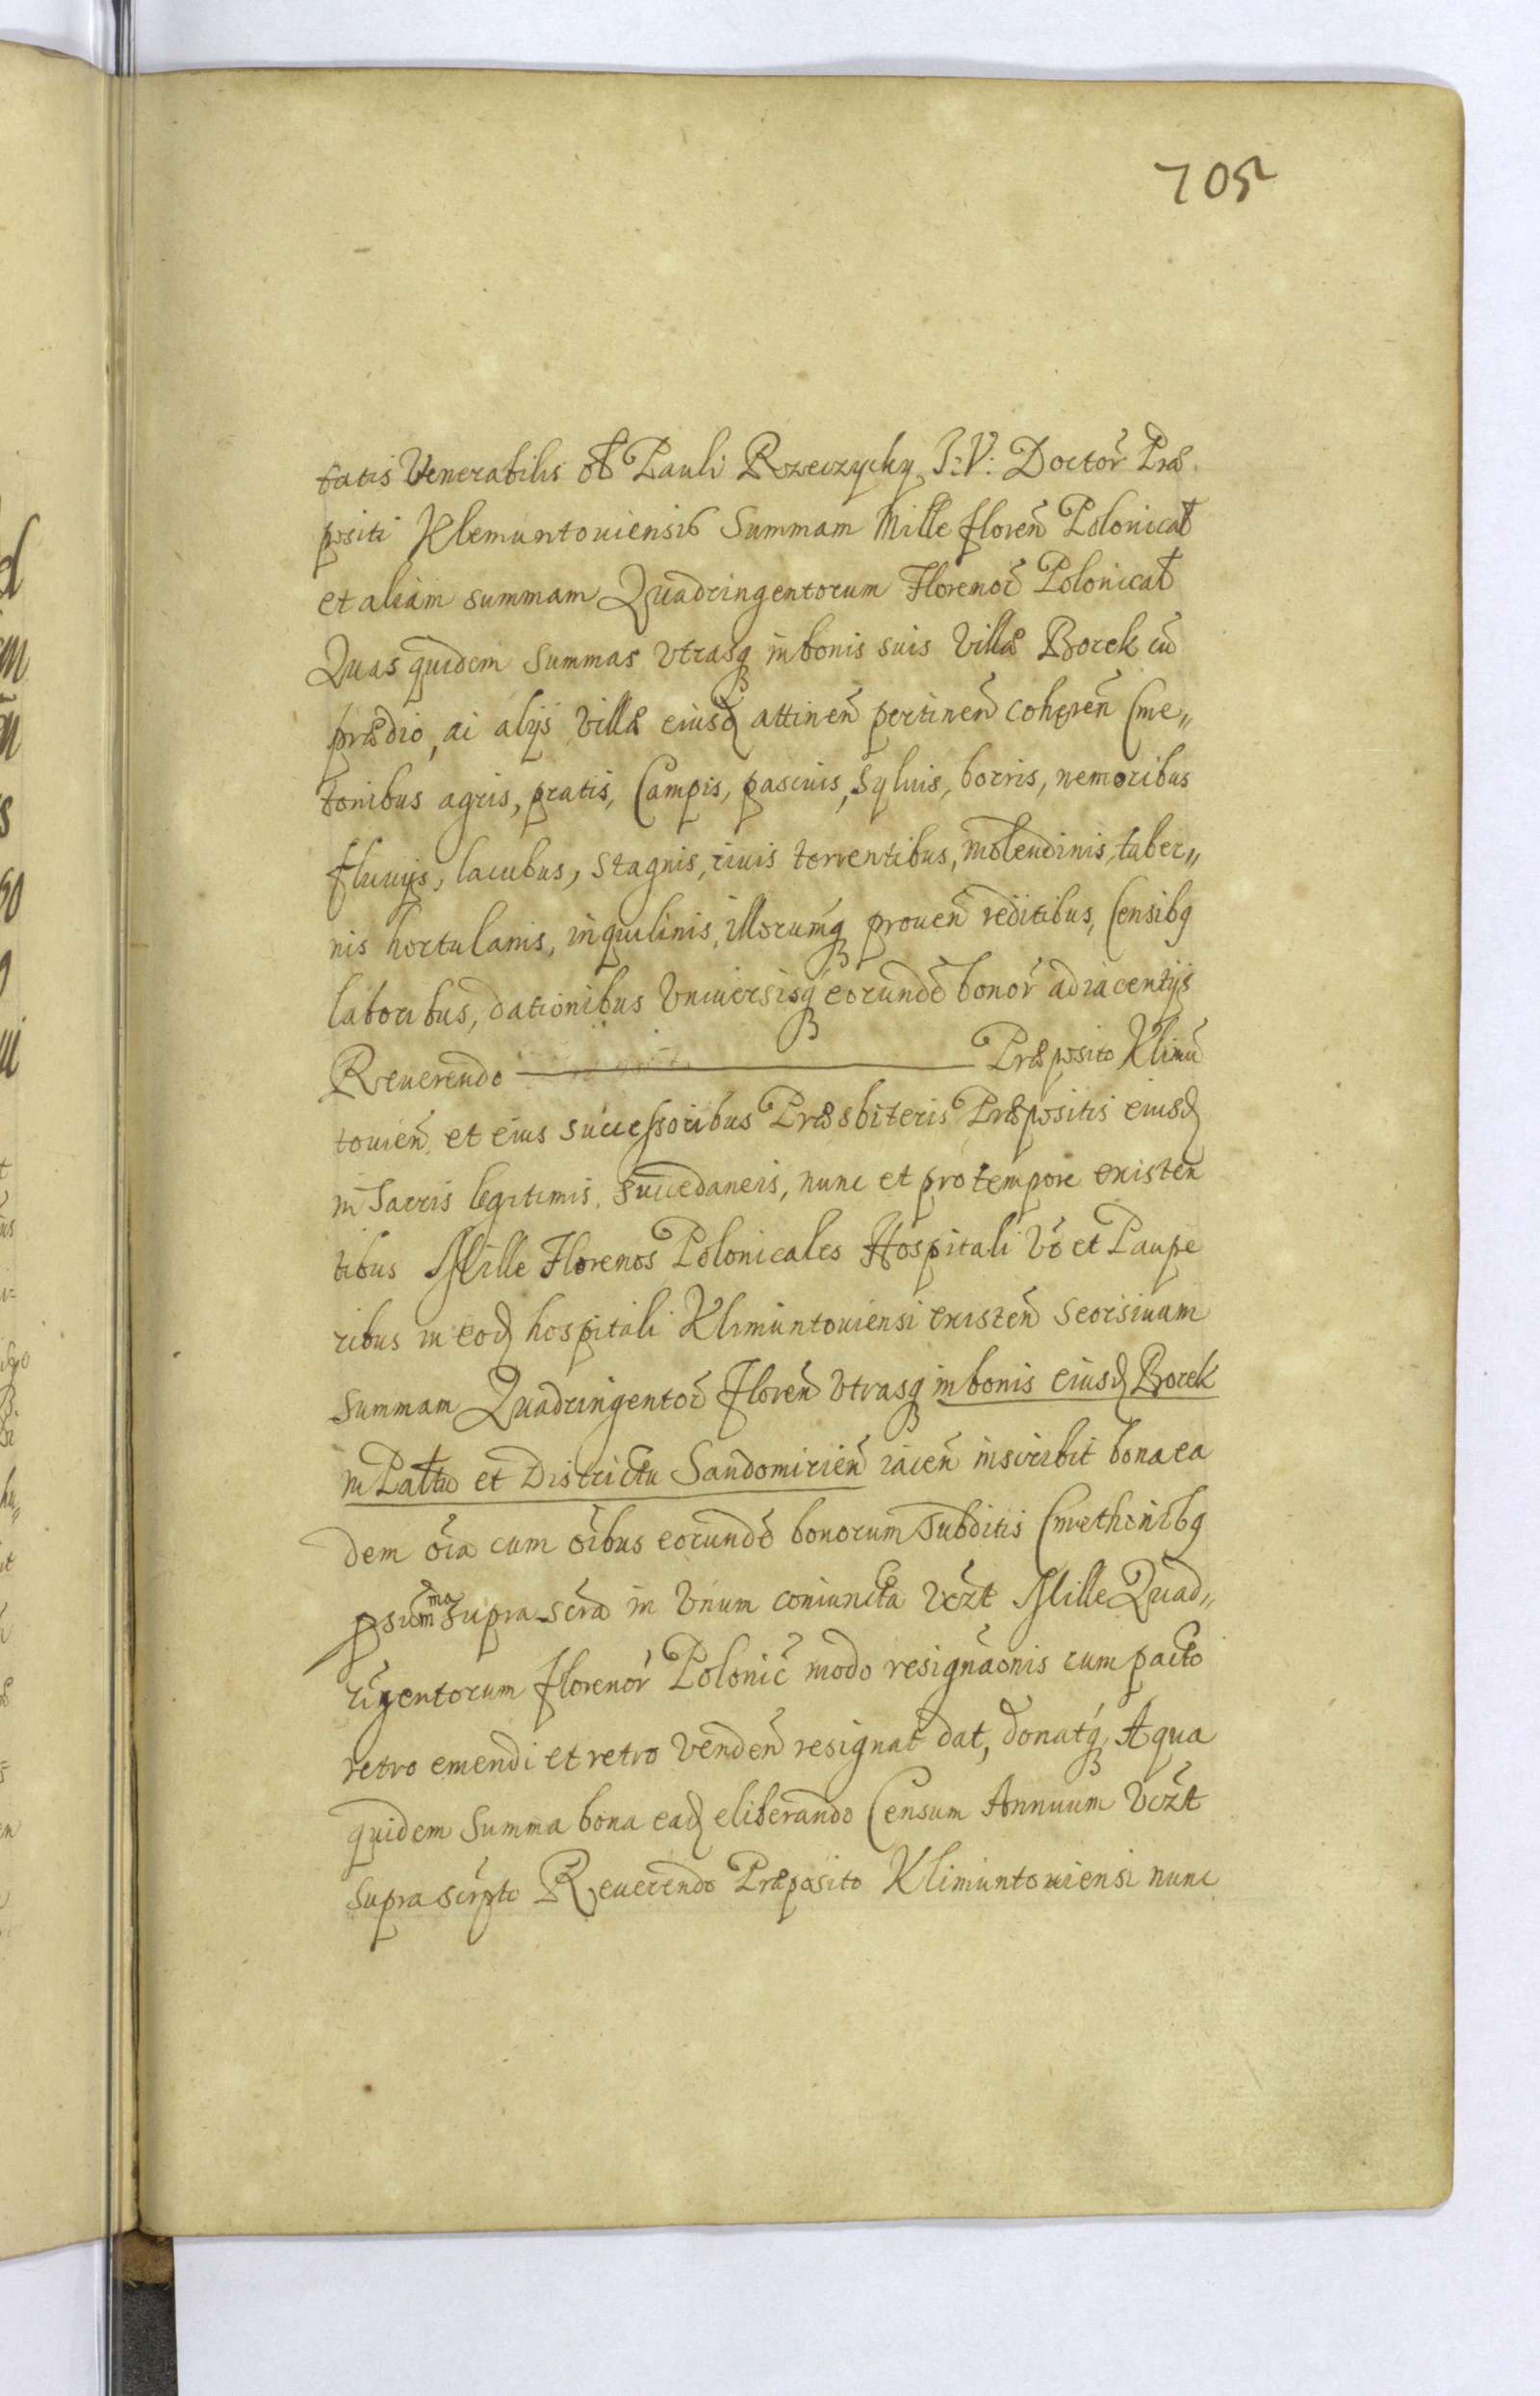 705
tatis Venerabilis ol Pauli Rzeczycky J: V: Doctor̃ Præ
positi Klemuntoviensis Summam Mille floreñ Polonical
et aliam summam Quadringentorum Florenor̃ Polonical
Quas quidem summas Vtrasq in bonis suis Villæ Borek cũ
prædio, ac alijs Villæ eiusd attineñ pertineñ cohęreñ Cme„
tonibus agris, pratis, Campis, pascuis, Syluis, borris, nemoribus
fluuijs, lacubus, Stagnis, riuis torrentibus, molendinis, taber„
nis hortulanis, inquilinis, illorumq proueñ reditibus, Censibq
laboribus, dationibus Vniuersisq eorundẽ bonor̃ adiacentijs
Reuerendo ——— Præposito Klimũ
touieñ et eius successoribus Præsbiteris Præpositis eiusd
in Sacris legitimis, succedaneis, nunc et pro tempore existen
tibus Mille Florenos Polonicales Hospitali Võ et Paupe
ribus in eod hospitali Klimuntouiensi existeñ seorsiuam
summam Quadringentor̃ Floreñ Vtrasq in bonis eiusd Borek
in Paltu et Districtu Sandomirieñ iaceñ inscribit bona ea
dem oĩa cum oĩbus eorundẽ bonorum subditis Cmethonibq
p sum̃ma suprascr̃a in Vnum coniuncta Vczt̃ Mille Quad„
ringentorum florenor̃ Polonic̃ modo resignãonis cum pacto
retro emendi et retro Vendeñ resignat dat, donatq, A qua
quidem Summa bona ead eliberando Censum Annuum Vczt̃
suprascripto Reuerendo Præposito Klimuntouiensi nunc